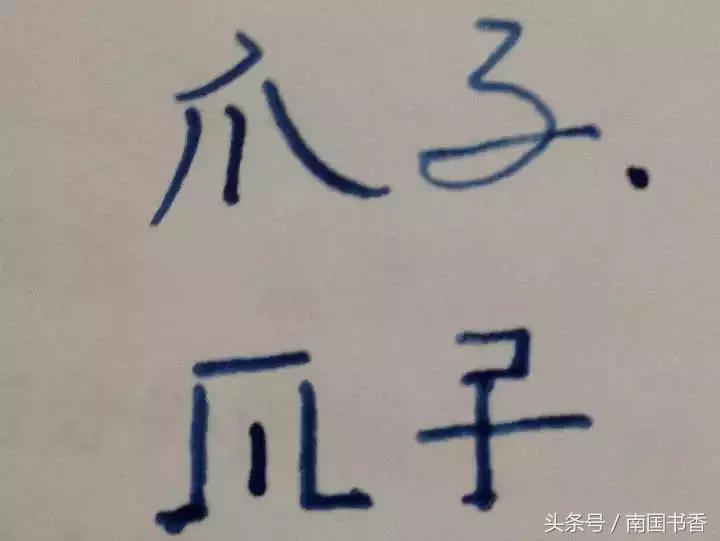 爪子.
爪子
头条号 / 南国书香